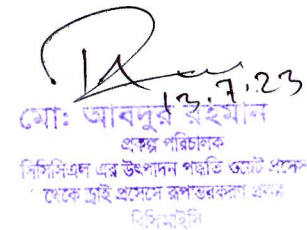 13.7.23
মোঃ আবদুর রহমান
প্রকল্প পরিচালক
সিসিসিএল এর উৎপাদন পদ্ধতি ওয়েট প্রসেস
থেকে ড্রাই প্রসেসে রূপান্তরকরণ প্রকল্প
বিসিআইসি